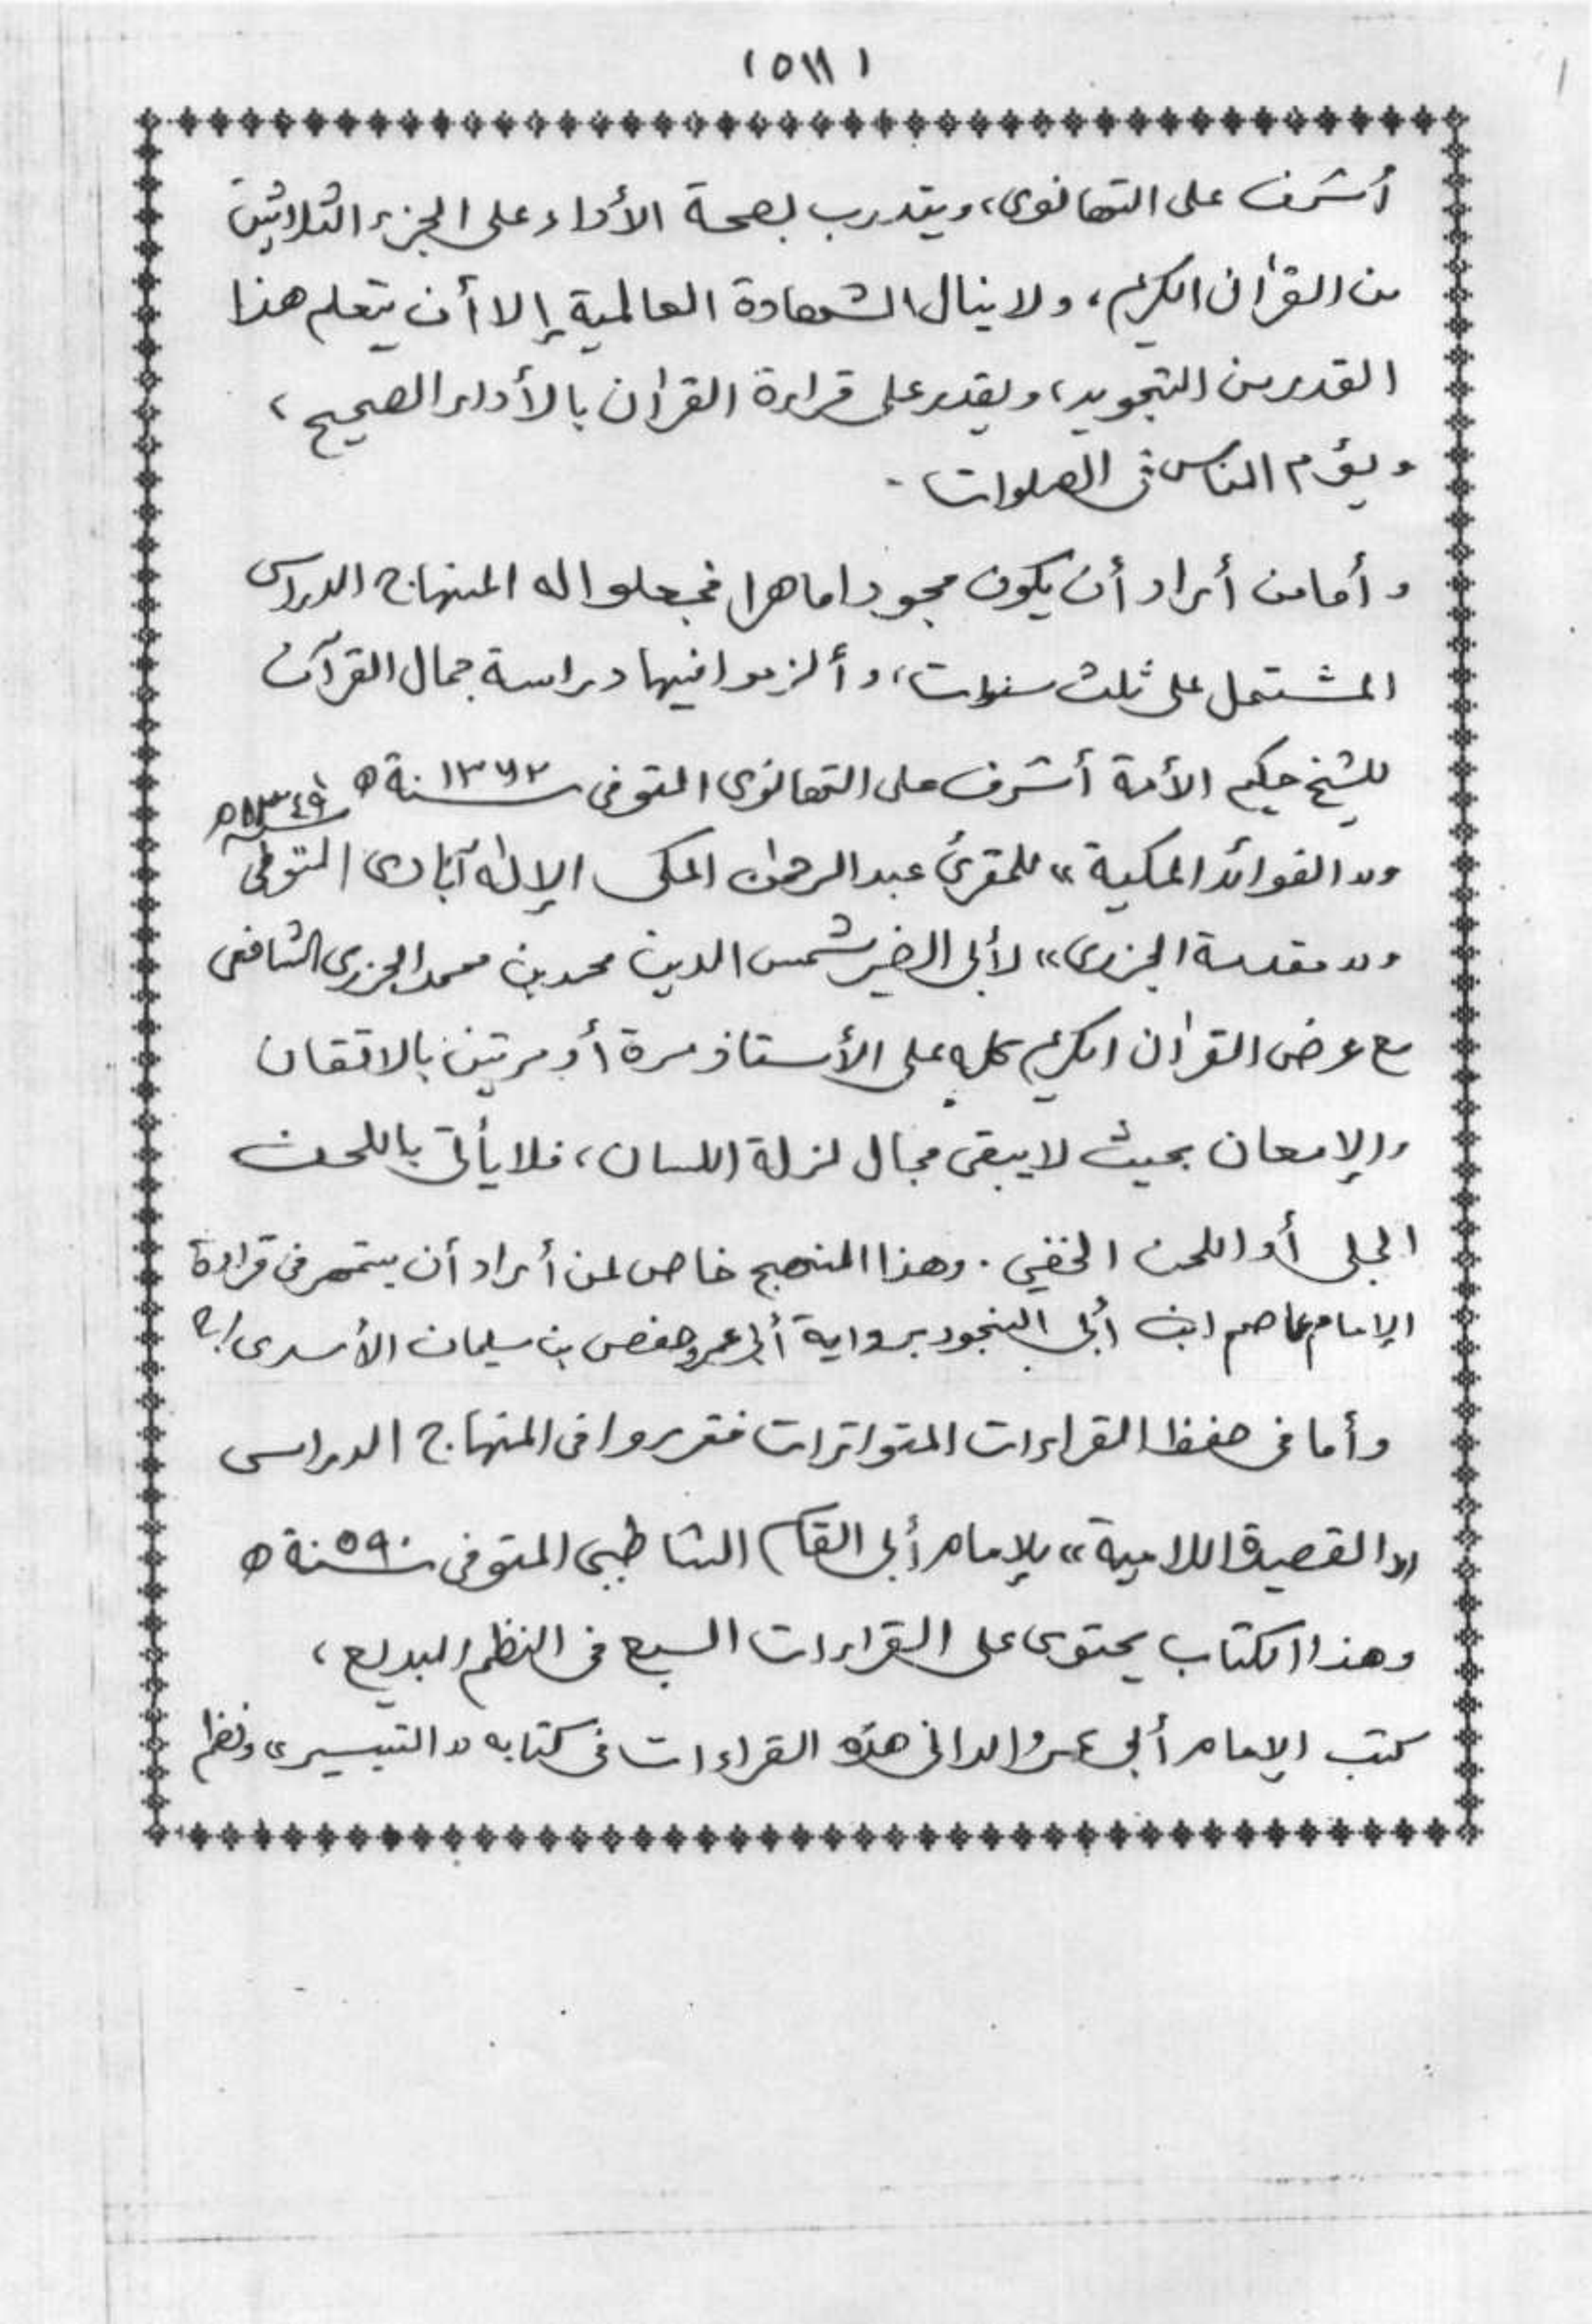 (٥١١)
أشرف على التهانوى، ويتدرب لصحة الأداء على الجزء الثلاثين
من القرٰان الكريم، ولا ينال الشهادة العالمية إلا أن يتعلم هذا
القدر من التجويد، ويقدر على قراءة القرٰان بالأداء الصحيح،
ويؤم الناس فى الصلوات.
وأما من أراد أن يكون مجودا ماهرا فجعلوا له المنهاج الدراسى
المشتمل على ثلث سنوات، وألزموا فيها دراسة جمال القرآن
للشيخ حكيم الأمة أشرف على التهانوى المتوفى سنة ١٣٦٢ ه
و"الفوائد المكية" للمقرئ عبد الرحمٰن المكى الإلٰه آبادى المتوفى سنة ١٣٤٩ ه
و"مقدمة الجزرى" لأبى الخير شمس الدين محمد بن محمد الجزرى الشافعى
مع عرض القرٰان الكريم كله على الأستاذ مرة أو مرتين بالاتقان
والإمعان بحيث لا يبقى مجال لزلة اللسان، فلا يأتى باللحن
الجلى أو اللحن الخفي. وهذا المنهج خاص لمن أراد أن يتمهر فى قراءة
الإمام عاصم ابن أبى النجود برواية أبى عمرو حفص بن سليمان الأسدى
وأما فى حفظ القراءات المتواترات فقرروا فى المنهاج الدراسى
"القصيدة اللامية" للإمام أبى القاسم الشاطبى المتوفى سنة ٥٩٠ ه
وهذا الكتاب يحتوى على القراءات السبع فى النظم البديع،
كتب الإمام أبى عمرو الدانى هذه القراءات فى كتابه "التيسير" ونظم